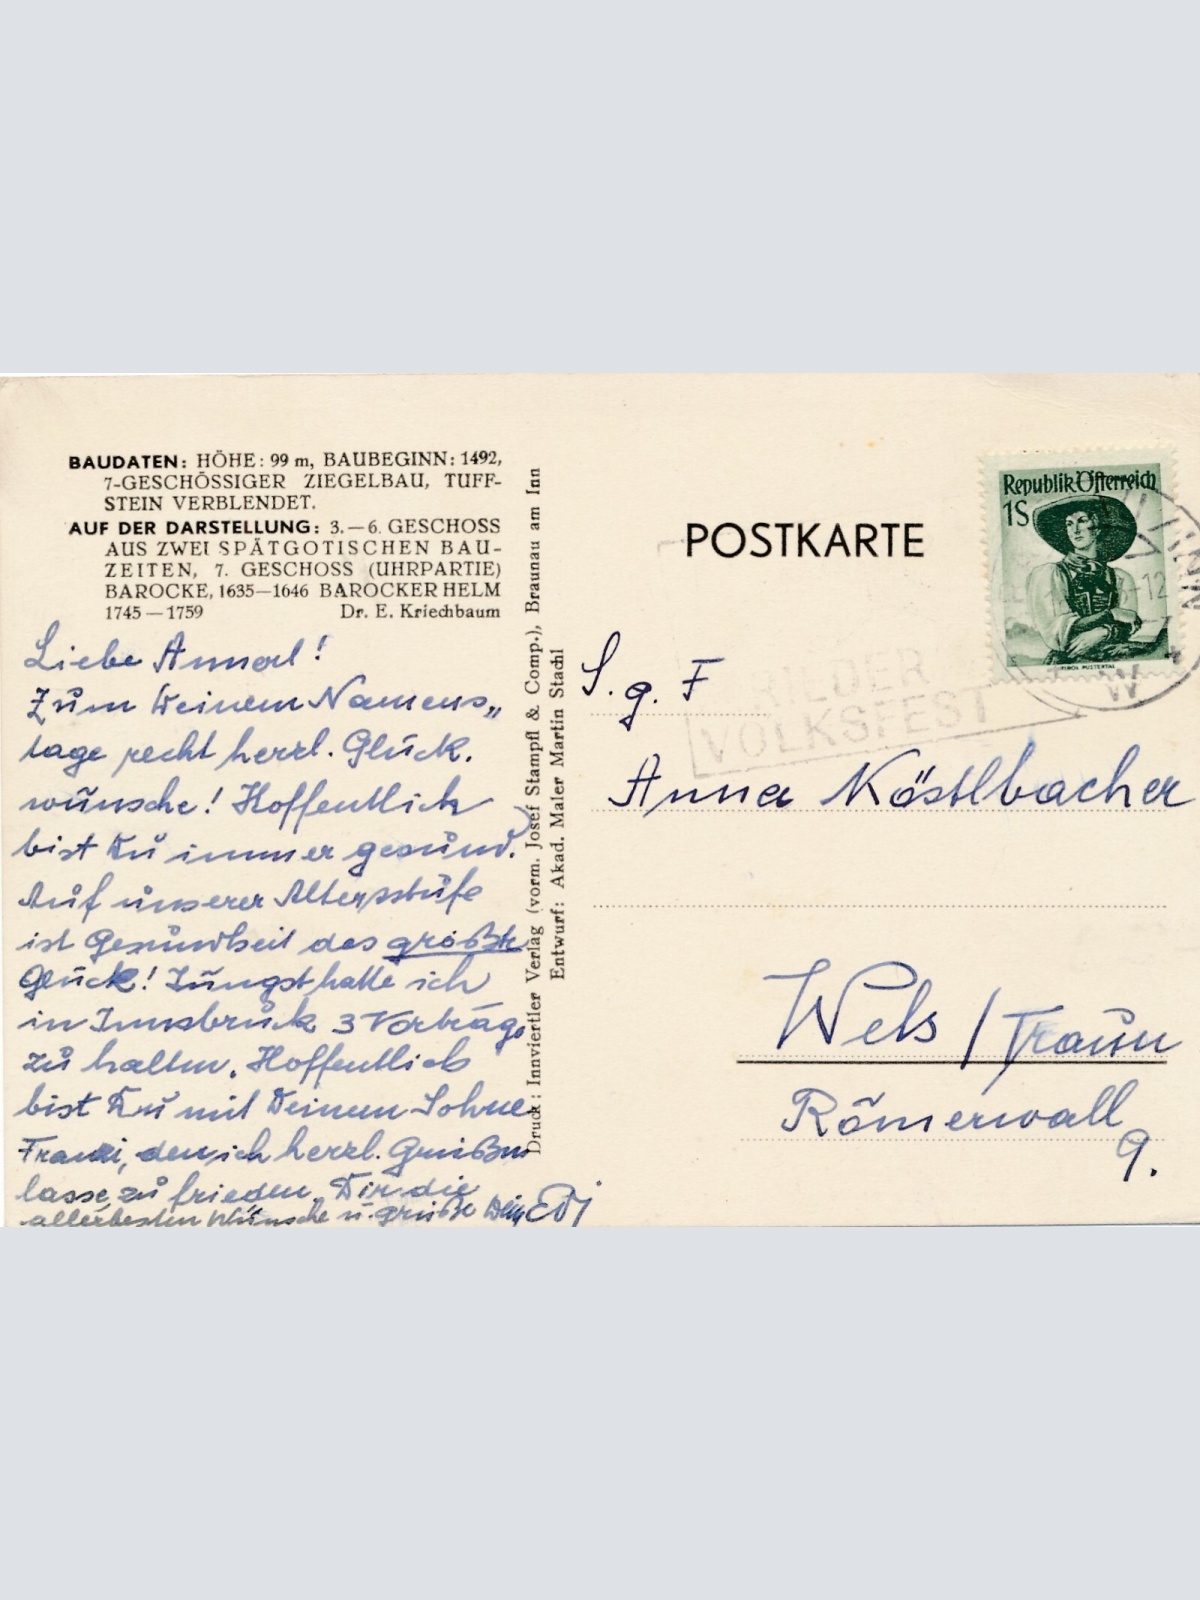 BAUDATEN: HÖHE: 99 m, BAUBEGINN: 1492,
7-GESCHÖSSIGER ZIEGELBAU, TUFF-
STEIN VERBLENDET.
AUF DER DARSTELLUNG: 3.—6. GESCHOSS
AUS ZWEI SPÄTGOTISCHEN BAU-
ZEITEN, 7. GESCHOSS (UHRPARTIE)
BAROCKE, 1635—1646 BAROCKER HELM
1745—1759 Dr. E. Kriechbaum
Liebe Annerl!
Zum Deinem Namens„
tage recht herzl. Glück.
wünsche! Hoffentlich
bist Du immer gesund.
Auf unserer Altersstufe
ist Gesundheit das größte
Glück! Jüngst hatte ich
in Innsbruck 3 Vorträge
zu halten. Hoffentlich
bist Du mit Deinem Sohne
Franzi, den ich herzl. Grüßen
lasse, zufrieden. Dir die
allerbesten Wünsche u. Grüße Dein Edi
Druck: Innviertler Verlag (vorm. Josef Stampfl & Comp.), Braunau am Inn
Entwurf: Akad. Maler Martin Stachl
POSTKARTE
Republik Österreich
1S
TIROL PUSTERTAL
VOLKSFEST
S. g. F
Anna Köstlbacher
Wels / Traun
Römerwall
9.